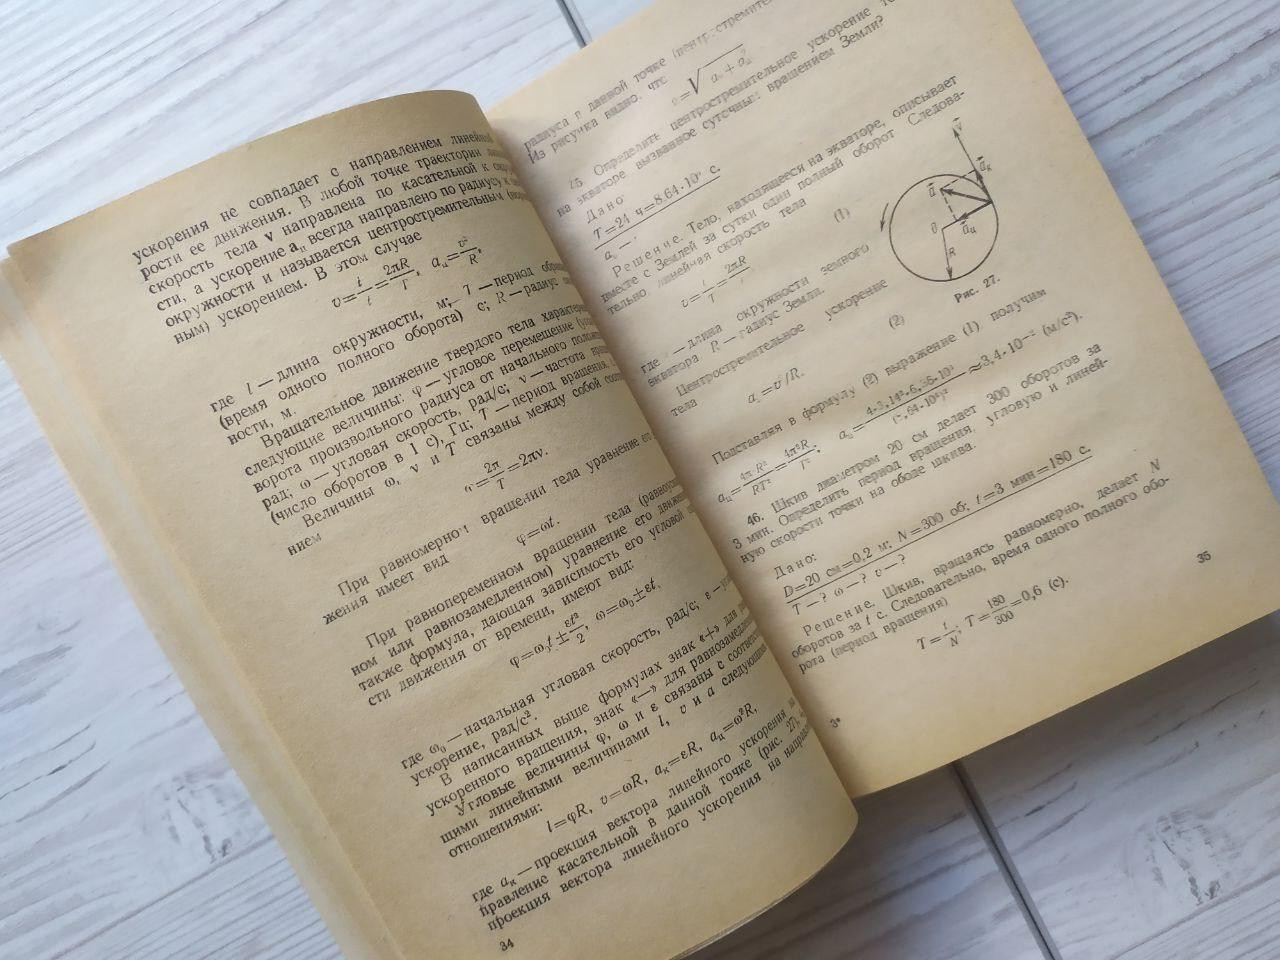 ускорения не совпадает с направлением линейной
рости ее движения. В любой точке траектории
скорость тела v направлена по касательной к
сти, а ускорение aц всегда направлено по радиусу к
окружности и называется центростремительным
ным) ускорением. В этом случае
v = l/t = 2πR/T, aц = v²/R,
где l — длина окружности, м; T — период
(время одного полного оборота) с; R — радиус
ности, м.
Вращательное движение твердого тела
следующие величины: φ — угловое перемещение
ворота произвольного радиуса от начального
рад; ω — угловая скорость, рад/с; ν — частота
(число оборотов в 1 с), Гц; T — период вращения.
Величины ω, ν и T связаны между собой
нием
= 2π/T = 2πν.
При равномерном вращении тела уравнение его
жения имеет вид
φ = ωt.
При равнопеременном вращении тела
ном или равнозамедленном) уравнение его
также формула, дающая зависимость его угловой
сти движения от времени, имеют вид:
φ = ω₀t ± εt²/2, ω = ω₀ ± εt,
где ω₀ — начальная угловая скорость, рад/с; ε —
ускорение, рад/с².
В написанных выше формулах знак «+» для
ускоренного вращения, знак «—» для
Угловые величины φ, ω и ε связаны с
щими линейными величинами l, v и a следующими
отношениями:
l = φR, v = ωR, aк = εR, aц = ω²R,
где aк — проекция вектора линейного ускорения на
правление касательной в данной точке (рис. 27),
проекция вектора линейного ускорения на
34
радиуса в данной точке
Из рисунка видно, что
Определить центростремительное ускорение
на экваторе вызванное суточным вращением Земли?
Дано
T = 24 ч = 8,64·10⁴ с.
aц — ?
Решение. Тело, находящееся на экваторе, описывает
вместе с Землей за сутки один полный оборот Следова-
тельно, линейная скорость тела
v = l/T = 2πR/T, (1)
где l — длина окружности земного
экватора R — радиус Земли.
Центростремительное ускорение
тела
aц = v²/R. (2)
v
aк
a
0
aц
R
Рис. 27.
Подставляя в формулу (2) выражение (1) получим
aц = 4π²R²/RT² = 4π²R/T², aц = ≈ 3,4·10⁻² (м/с²).
46. Шкив диаметром 20 см делает 300 оборотов за
3 мин. Определить период вращения, угловую и линей-
ную скорости точки на ободе шкива.
Дано:
D = 20 см = 0,2 м; N = 300 об; t = 3 мин = 180 с.
T — ? ω — ? v — ?
Решение. Шкив, вращаясь равномерно, делает N
оборотов за t с. Следовательно, время одного полного обо-
рота (период вращения)
T = t/N; T = 180/300 = 0,6 (с).
3*
35